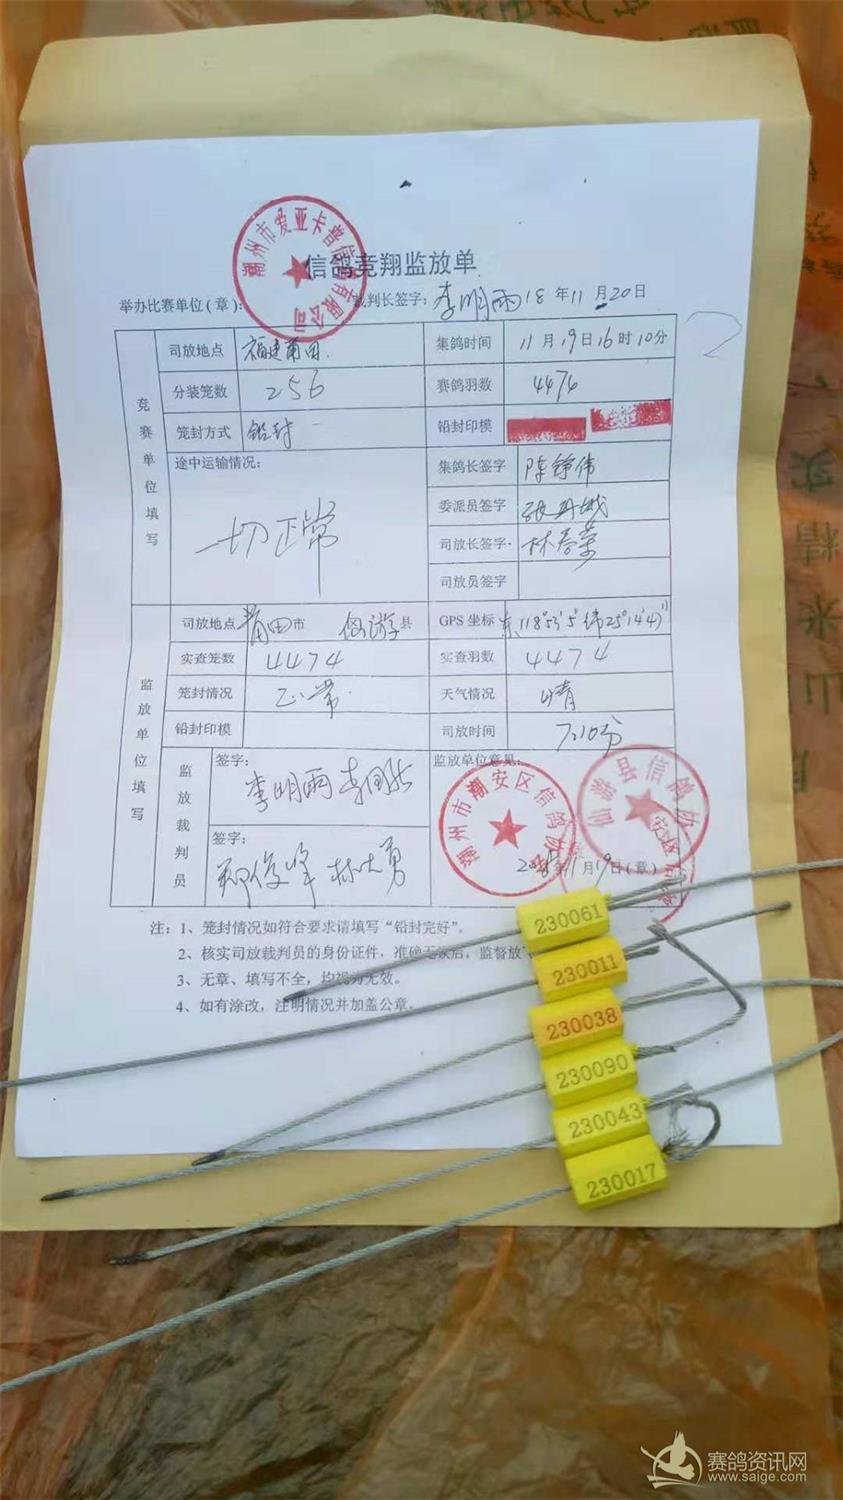 潮州市爱亚卡普信鸽有限公司
信鸽竞翔监放单
举办比赛单位(章): 裁判长签字: 李明雨 18年11月20日
竞赛单位填写
司放地点 福建莆田 集鸽时间 11月19日16时10分
分装笼数 256 赛鸽羽数 4474
笼封方式 铅封 铅封印模
途中运输情况: 一切正常
集鸽长签字 陈铮伟
委派员签字
司放长签字 林春荣
司放员签字
监放单位填写
司放地点 莆田市 仙游县 GPS 坐标 东118°53′5″纬25°14′47″
实查笼数 4474 实查羽数 4474
笼封情况 正常 天气情况 晴
铅封印模 司放时间 7:10分
监放裁判员
签字: 李明雨
签字: 郑俊峰 林大勇
监放单位意见:
潮州市潮安区信鸽协
仙游县信鸽协
年11月19日(章)
注:1、笼封情况如符合要求请填写“铅封完好”。
2、核实司放裁判员的身份证件,准确无误后,监督放
3、无章、填写不全,均视为无效。
4、如有涂改,注明情况并加盖公章。
230061
230011
230038
230090
230043
230017
赛鸽资讯网
www.saige.com